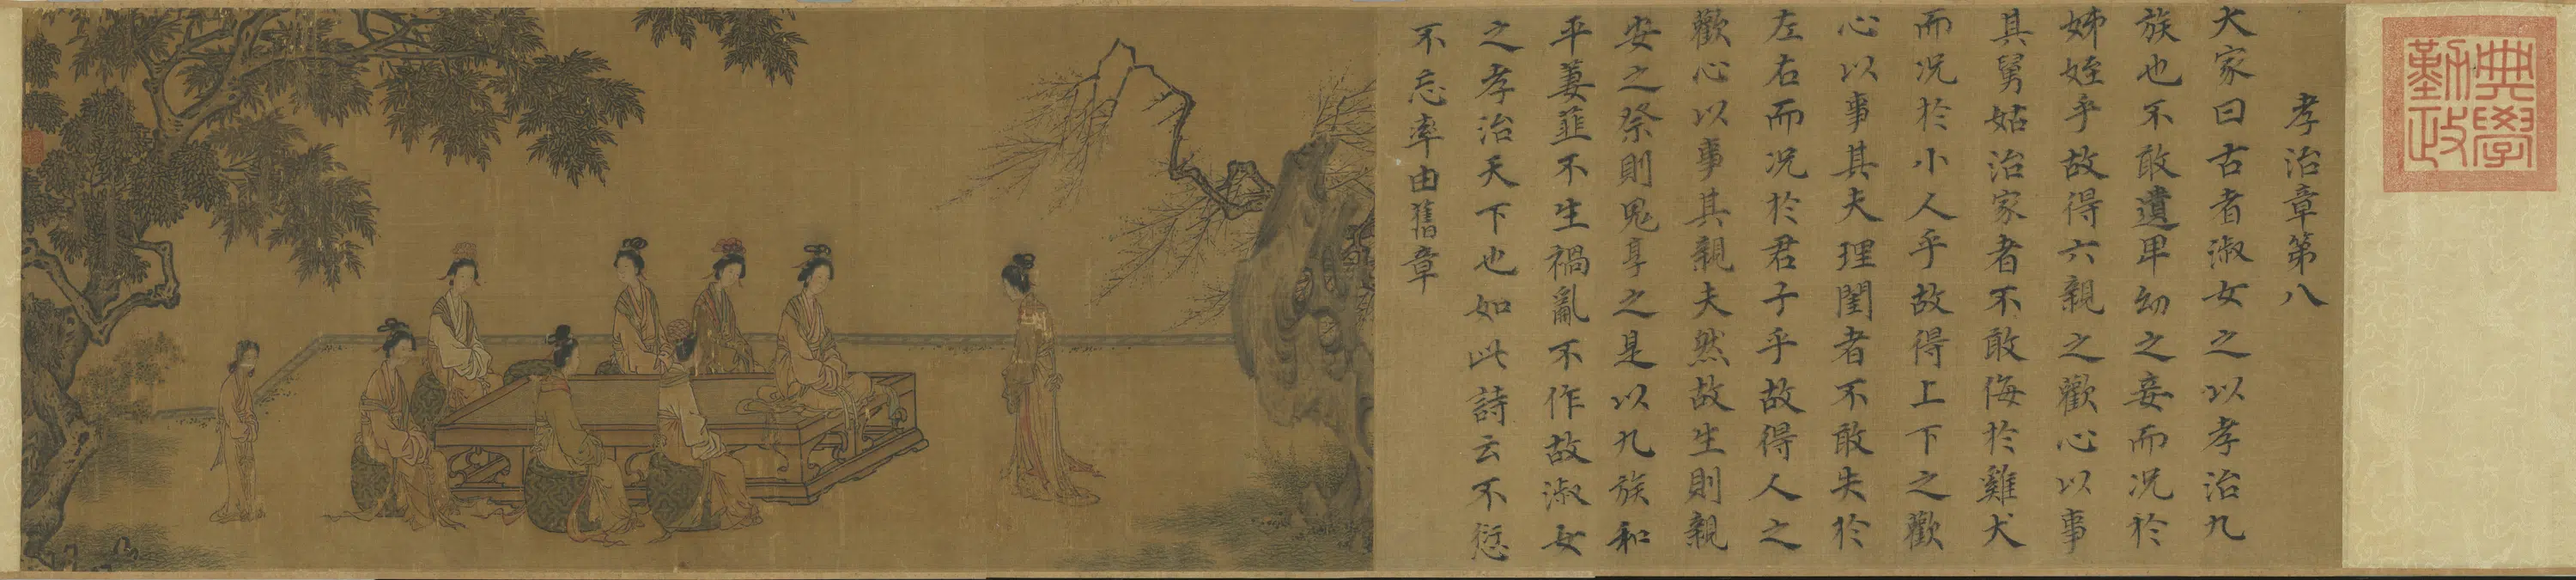 典學勤政
孝治章第八
大家曰古者淑女之以孝治九
族也不敢遺卑幼之妾而況於
姊姪乎故得六親之歡心以事
其舅姑治家者不敢侮於雞犬
而況於小人乎故得上下之歡
心以事其夫理閨者不敢失於
左右而況於君子乎故得人之
歡心以事其親夫然故生則親
安之祭則鬼享之是以九族和
平萋菲不生禍亂不作故淑女
之孝治天下也如此詩云不愆
不忘率由舊章